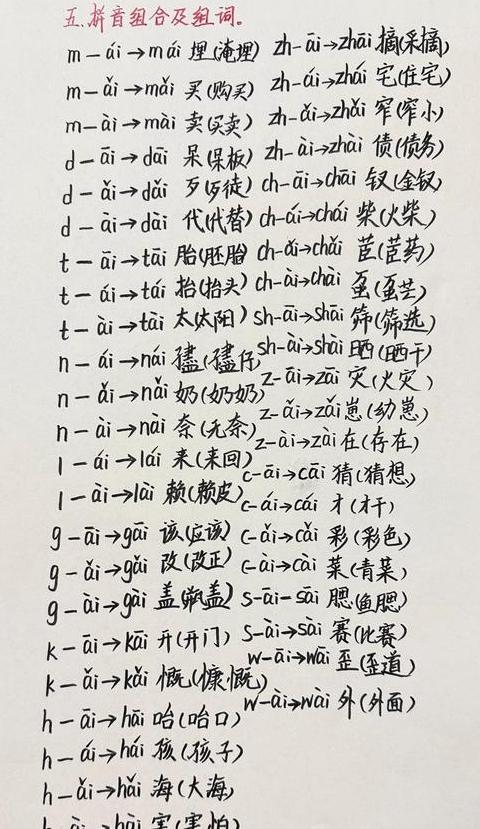 五.拼音组合及组词。
m-ái→mái 埋(淹埋)
m-ǎi→mǎi 买(购买)
m-ài→mài 卖(买卖)
d-āi→dāi 呆(呆板)
d-ǎi→dǎi 歹(歹徒)
d-ài→dài 代(代替)
t-āi→tāi 胎(胚胎)
t-ái→tái 抬(抬头)
t-ài→tài 太(太阳)
n-ái→nái 孻(孻仔)
n-ǎi→nǎi 奶(奶奶)
n-ài→nài 奈(无奈)
l-ái→lái 来(来回)
l-ài→lài 赖(赖皮)
g-āi→gāi 该(应该)
g-ǎi→gǎi 改(改正)
g-ài→gài 盖(瓶盖)
k-āi→kāi 开(开门)
k-ǎi→kǎi 慨(慷慨)
h-āi→hāi 哈(哈口)
h-ái→hái 孩(孩子)
h-ǎi→hǎi 海(大海)
h-ài→hài 害(害怕)
zh-āi→zhāi 摘(采摘)
zh-ái→zhái 宅(住宅)
zh-ǎi→zhǎi 窄(窄小)
zh-ài→zhài 债(债务)
ch-āi→chāi 钗(金钗)
ch-ái→chái 柴(火柴)
ch-ǎi→chǎi 茝(茝药)
ch-ài→chài 虿(虿芒)
sh-āi→shāi 筛(筛选)
sh-ài→shài 晒(晒干)
z-āi→zāi 灾(火灾)
z-ǎi→zǎi 崽(幼崽)
z-ài→zài 在(存在)
c-āi→cāi 猜(猜想)
c-ái→cái 才(才干)
c-ǎi→cǎi 彩(彩色)
c-ài→cài 菜(青菜)
s-āi-sāi 腮(鱼腮)
s-ài→sài 赛(比赛)
w-āi→wāi 歪(歪道)
w-ài→wài 外(外面)